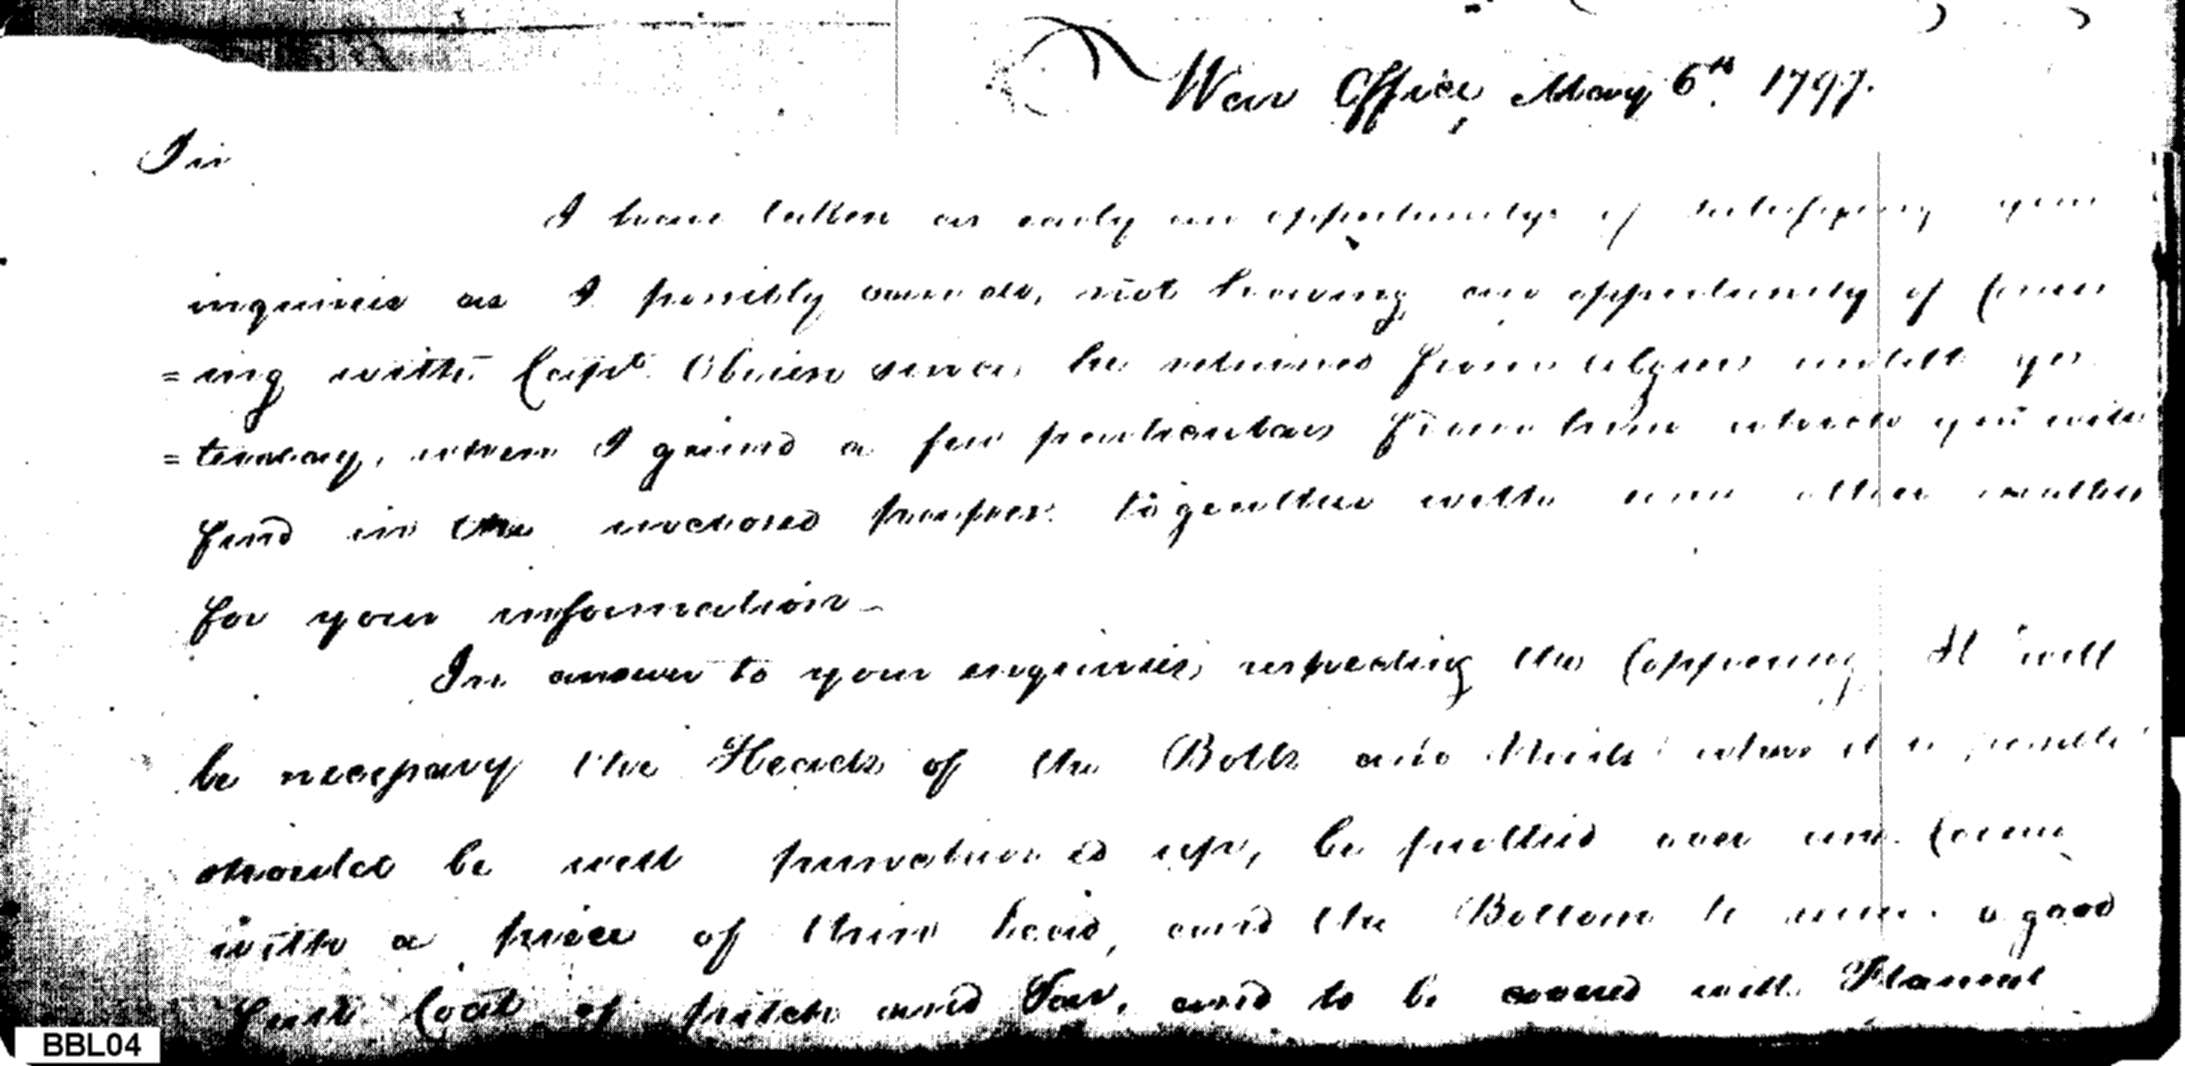 War Office, May 6th 1797.
Sir
I have taken as early an opportunity of satisfying your
inquiries as I possibly could, not having an opportunity of
=ing with Capt. Obrien since he returned from Algiers untill yes
=terday, when I gained a few particulars from him which you will
find in the inclosed paper together with some other matters
for your information_
In answer to your enquiries respecting the Coppering It will
be necessary the Heads of the Bolts and where it is possible
should be well up, be puttied over and
with a piece of thin lead, and the Bottom to a good
Coat of pitch and Tar, and to be covered with Flannel
BBL04